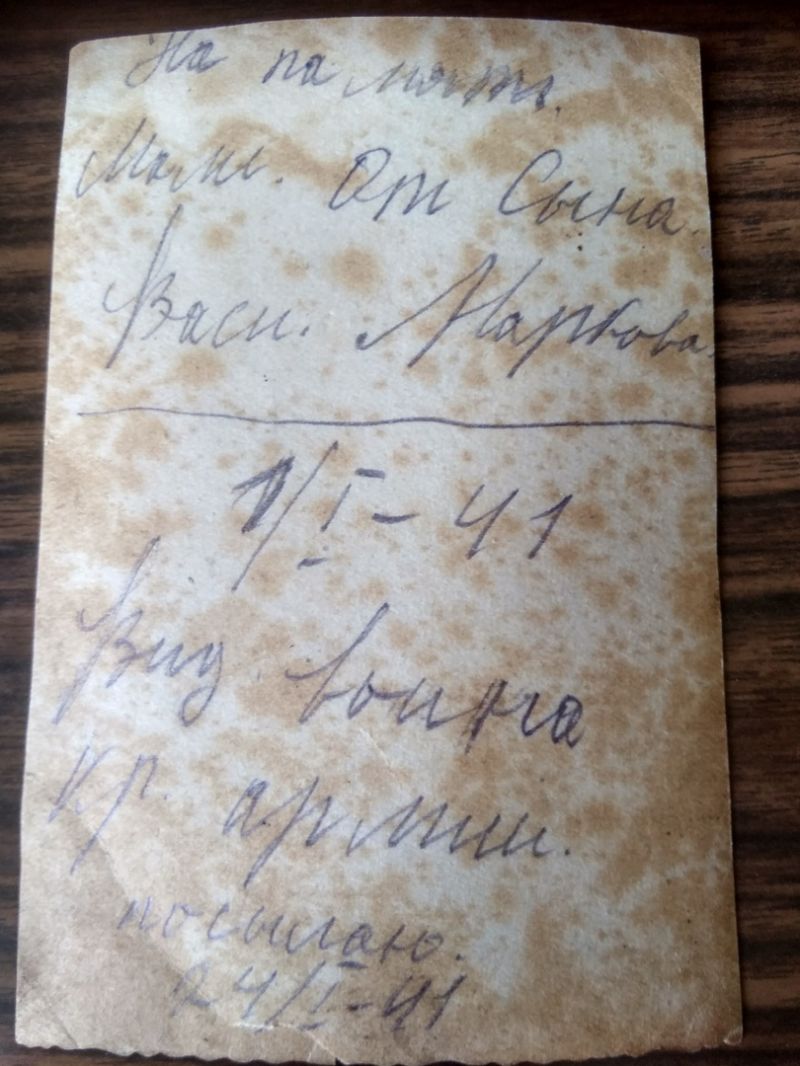 На память.
Маме. От Сына.
Васи. Маркова.
1/I-41
Вид воина
Кр. армии.
посылаю.
24/I-41